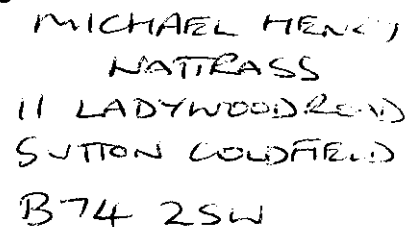 MICHAEL HENRY
NATTRASS
11 LADYWOOD ROAD
SUTTON COLDFIELD
B74 2SW